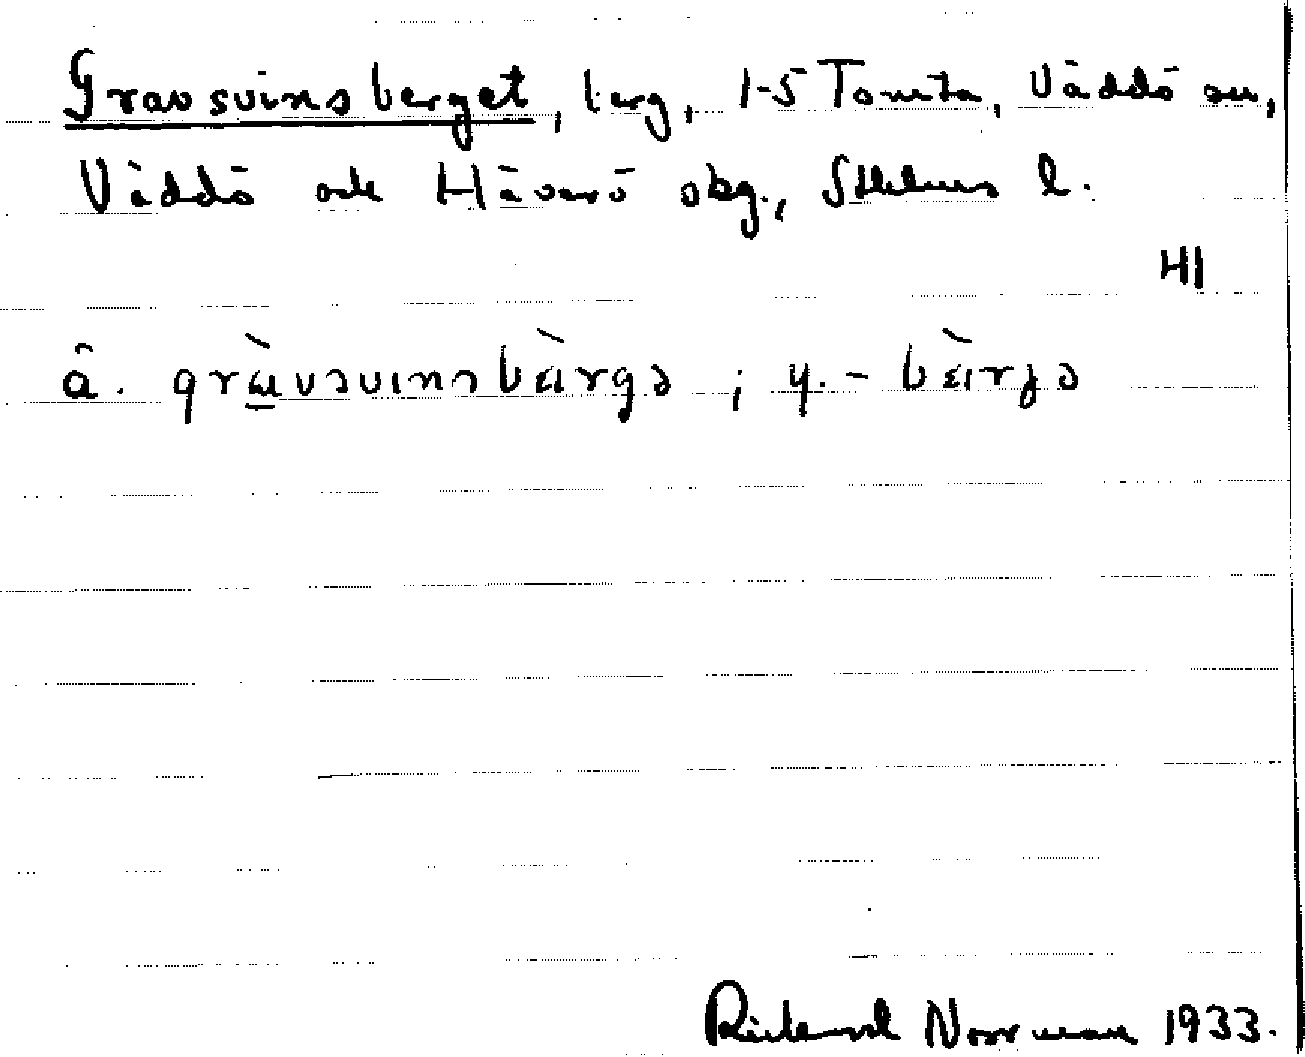 Gravsvinsberget, berg, 1-5 Tomta, Väddö sn,
Väddö och Häverö skg., Sthlms l.
HI
a. grævsvinsbærgə ; y. - bærjə
Rickard Norrman 1933.